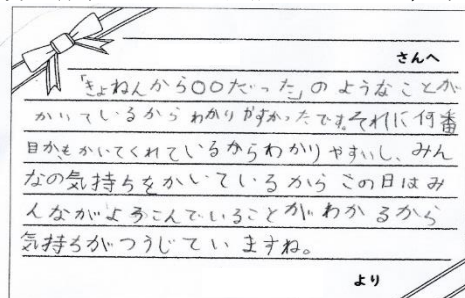 さんへ
「きょねんから〇〇だった」のようなことが
かいているからわかりやすかったです。それに何番
目かもかいてくれているからわかりやすいし、みん
なの気持ちをかいているからこの日はみ
んながよろこんでいることがわかるから
気持ちがつうじていますね。
より